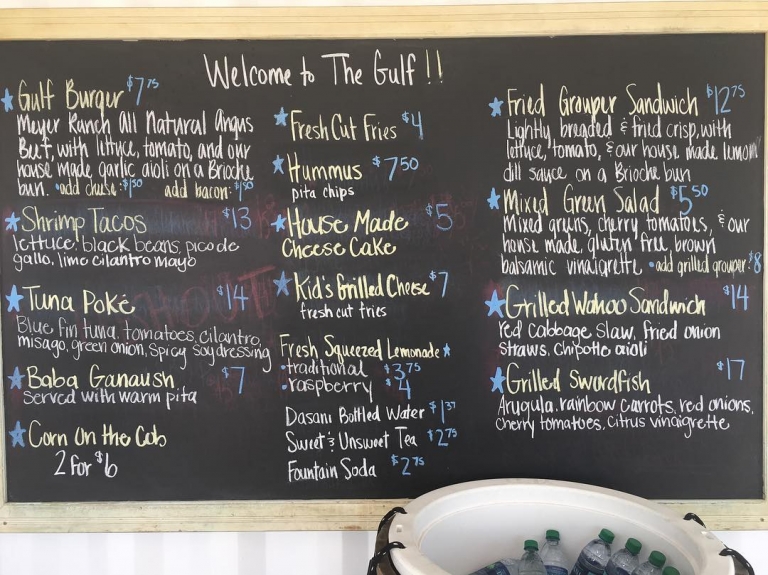 Welcome to The Gulf!!
Gulf Burger $7.75
Meyer Ranch All Natural Angus
Beef, with lettuce, tomato, and our
house made garlic aioli on a Brioche
bun. •add cheese: $1.50 add bacon: $1.50
Shrimp Tacos $13
lettuce, black beans, pico de
gallo, lime cilantro mayo
Tuna Poké $14
Blue fin tuna, tomatoes, cilantro,
misago, green onion, spicy soy dressing
Baba Ganaush $7
served with warm pita
Corn on the Cob
2 for $6
Fresh Cut Fries $4
Hummus $7.50
pita chips
House Made $5
Cheese Cake
Kid's Grilled Cheese $7
fresh cut fries
Fresh Squeezed Lemonade
•traditional $3.75
•raspberry $4
Dasani Bottled Water $1.37
Sweet & Unsweet Tea $2.75
Fountain Soda $2.75
Fried Grouper Sandwich $12.75
Lightly breaded & fried crisp, with
lettuce, tomato, & our house made lemon
dill sauce on a Brioche bun
Mixed Green Salad $5.50
Mixed greens, cherry tomatoes, & our
house made gluten free, brown
balsamic vinaigrette •add grilled grouper: $8
Grilled Wahoo Sandwich $14
red cabbage slaw, fried onion
straws, chipotle aioli
Grilled Swordfish $17
Arugula, rainbow carrots, red onions,
cherry tomatoes, citrus vinaigrette